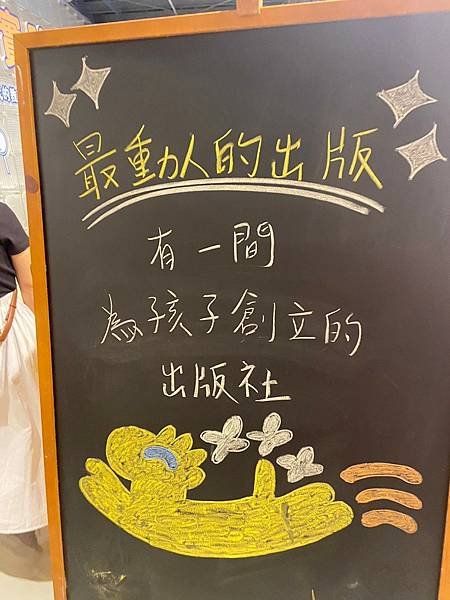 最動人的出版
有一間
為孩子創立的
出版社